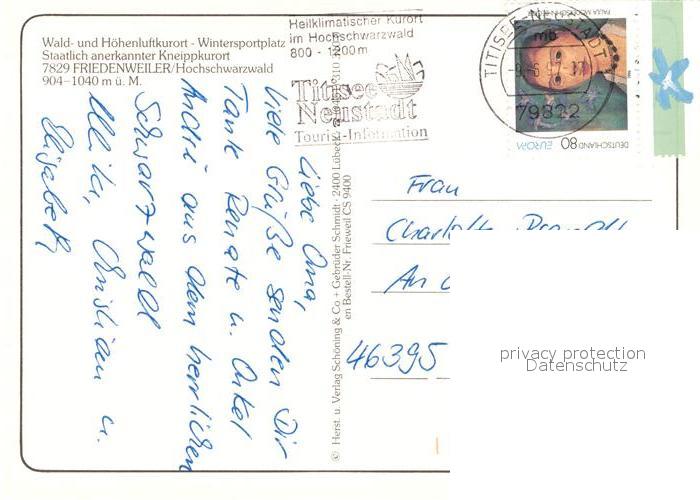 Wald- und Höhenluftkurort - Wintersportplatz
Staatlich anerkannter Kneippkurort
7829 FRIEDENWEILER/Hochschwarzwald
904–1040 m ü. M.
Heilklimatischer Kurort
im Hochschwarzwald
800 - 1200m
Titisee
Neustadt
Tourist-Information
TITISEE-NEUSTADT
mb
79822
DEUTSCHLAND 80
EUROPA
Liebe Oma,
liebe Grüße senden Dir
Tante Renate u. Onkel
André aus dem herrlichen
Schwarzwald
Ulrike, Christian u.
Elisabeth
© Herst. u. Verlag Schöning & Co + Gebrüder Schmidt · 2400 Lübeck
en Bestell-Nr. Frieweil CS 9400
Frau
An
46395
privacy protection
Datenschutz